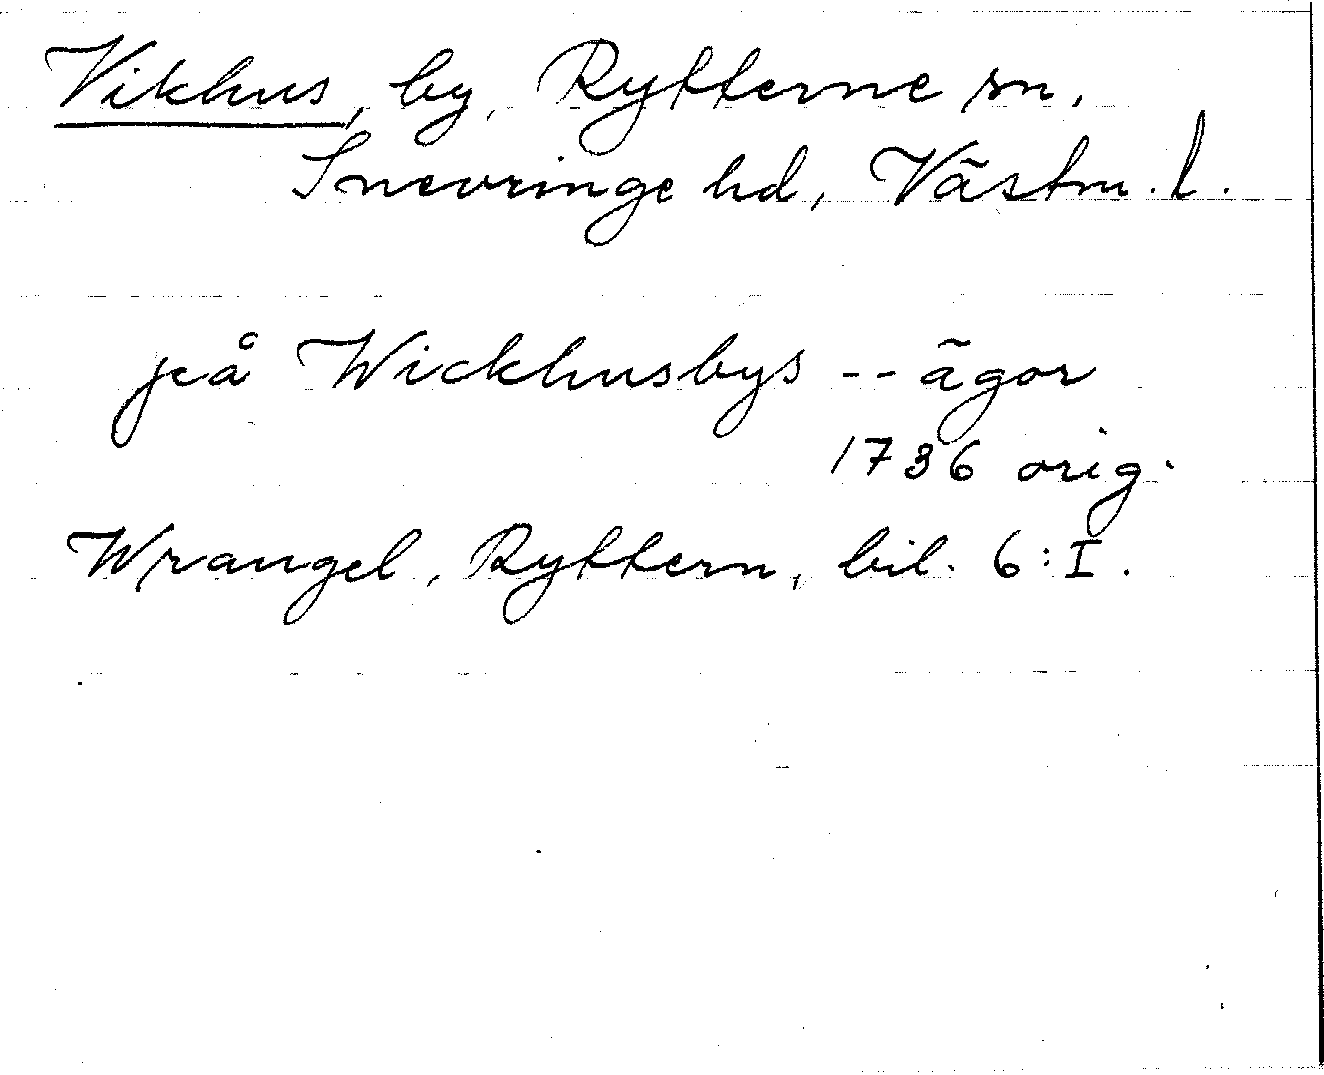 Vikhus, by, Rytterne sn,
Snevringe hd, Västm. l.
på Wickhusbys -- ägor
1736 orig.
Wrangel, Ryttern, bil. 6:I.